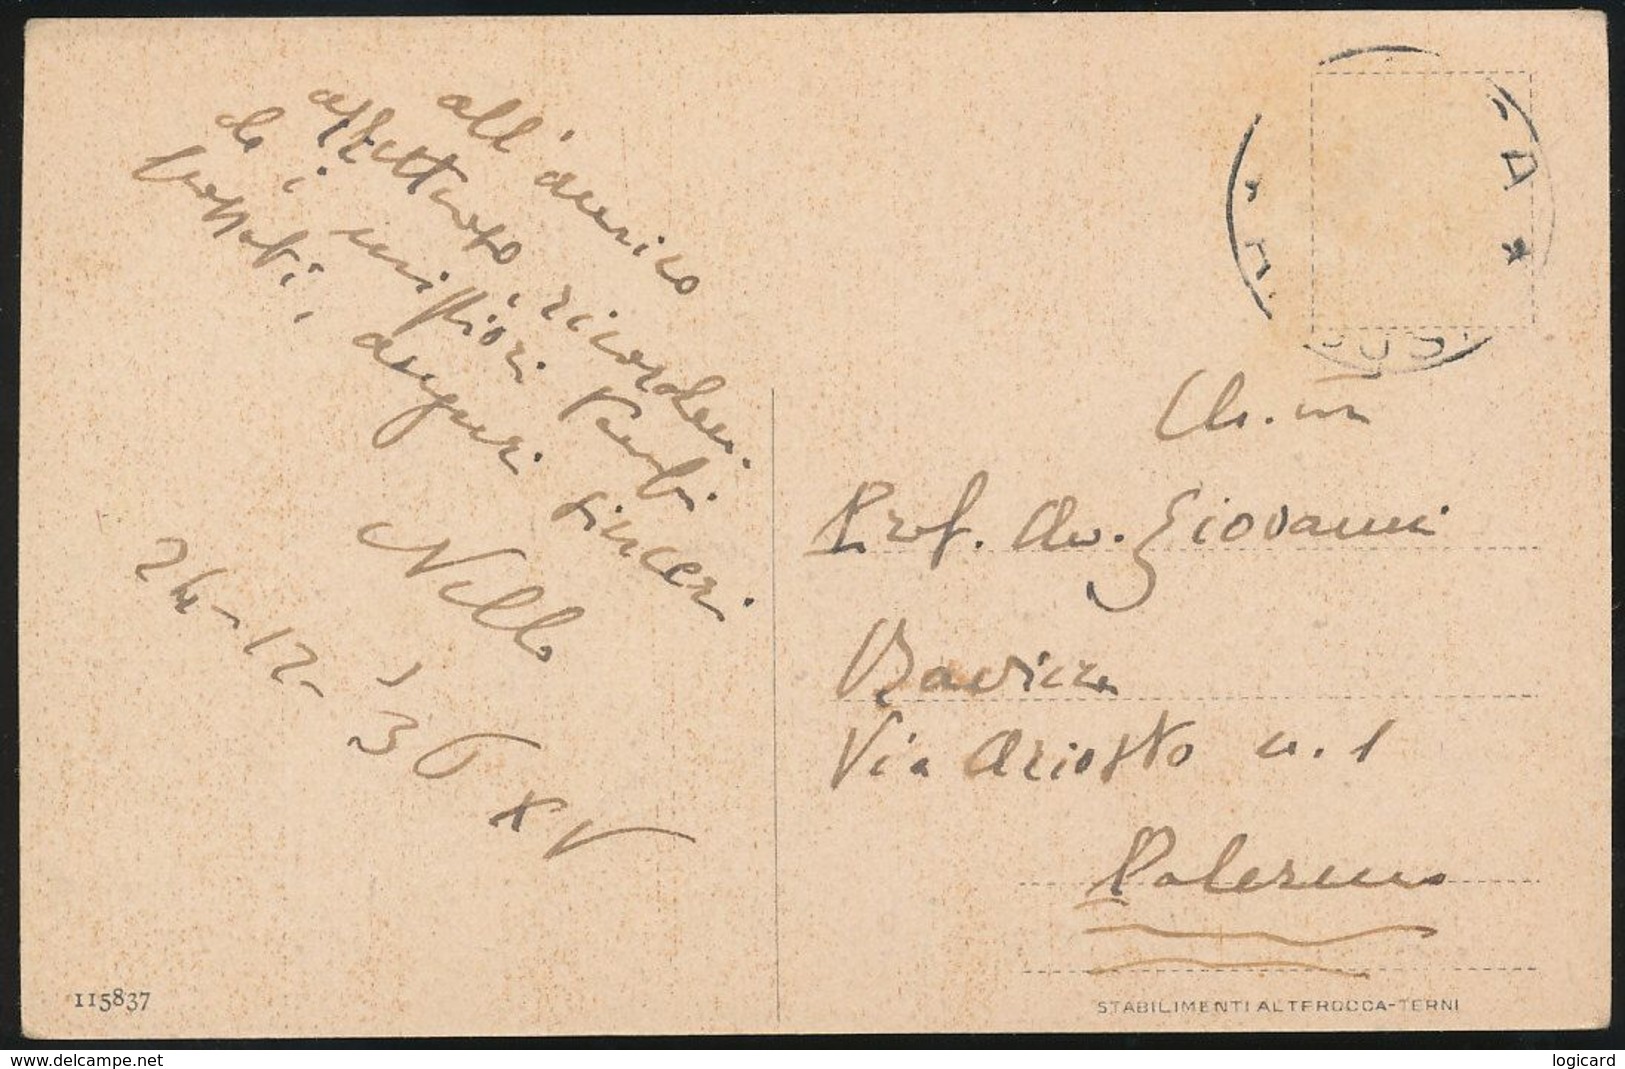 all'amico
affettuoso, ricordan
do i migliori tempi
passati, auguri sinceri
Nello
24-12-'36 XV
Ch.mo
Prof. Av. Giovanni
Baviera
Via Ariosto n. 1
Palermo
115837
STABILIMENTI ALTEROCCA-TERNI
www.delcampe.net
logicard